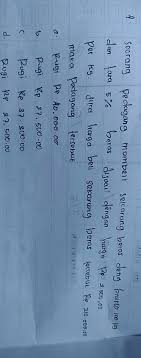 seorang pedagang membeli sekarung beras deng bruto 40 kg
dan tara 5 % beras dijual dengan harga Rp 2.500,00
per kg jika harga beli sekarung beras tersebut Rp
maka pedagang tersebut
a. Rugi Rp 10.000.00
b. Rugi Rp 27.500.00
c. Rugi Rp 37.500.00
d. Rugi Rp 27.500.00